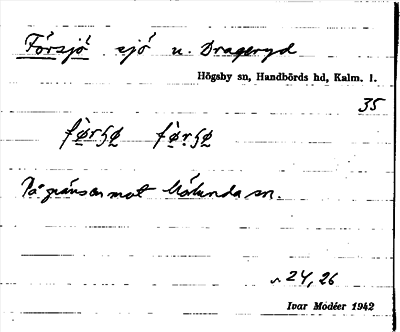 Försjö sjö n. Drageryd
Högsby sn, Handbörds hd, Kalm. l.
35
På gränsen mot Målunda sn.
24, 26
Ivar Modéer 1942